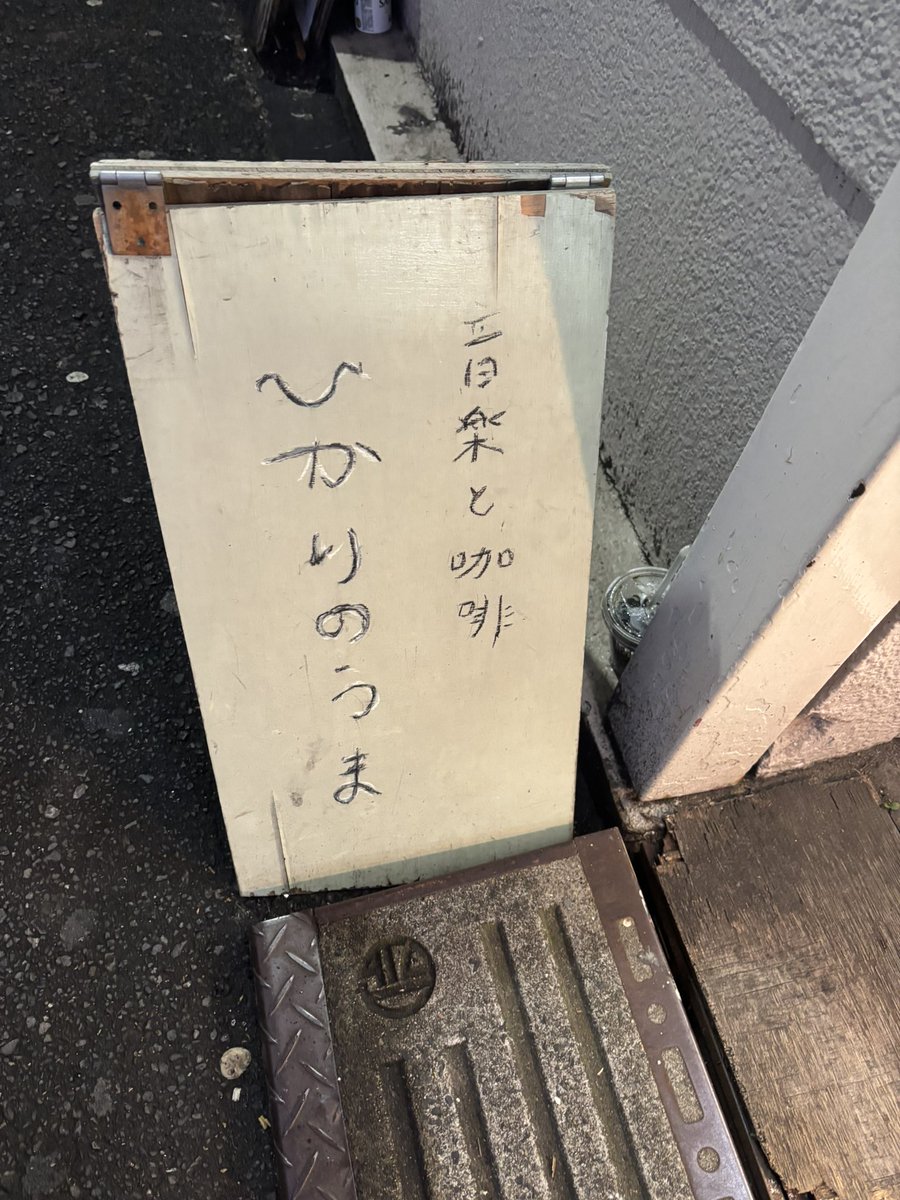 音楽と咖啡
ひかりのうま